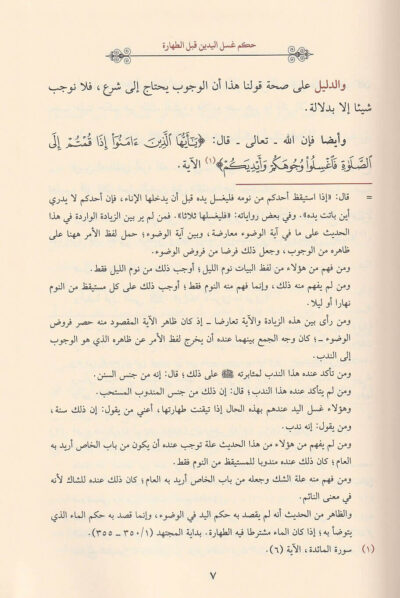 حكم غسل اليدين قبل الطهارة
والدليل على صحة قولنا هذا أن الوجوب يحتاج إلى شرع، فلا نوجب
شيئا إلا بدلالة.
وأيضا فإن الله ـ تعالى ـ قال: ﴿يَٰٓأَيُّهَا ٱلَّذِينَ ءَامَنُوٓا۟ إِذَا قُمْتُمْ إِلَى
ٱلصَّلَوٰةِ فَٱغْسِلُوا۟ وُجُوهَكُمْ وَأَيْدِيَكُمْ﴾(١) الآية.
= قال: «إذا استيقظ أحدكم من نومه فليغسل يده قبل أن يدخلها الإناء، فإن أحدكم لا يدري
أين باتت يده». وفي بعض رواياته: «فليغسلها ثلاثا». فمن لم ير بين الزيادة الواردة في هذا
الحديث على ما في آية الوضوء معارضة، وبين آية الوضوء؛ حمل لفظ الأمر ههنا على
ظاهره من الوجوب، وجعل ذلك فرضا من فروض الوضوء.
ومن فهم من هؤلاء من لفظ البيات نوم الليل؛ أوجب ذلك من نوم الليل فقط.
ومن لم يفهم منه ذلك، وإنما فهم منه النوم فقط؛ أوجب ذلك على كل مستيقظ من النوم
نهارا أو ليلا.
ومن رأى بين هذه الزيادة والآية تعارضا ـ إذ كان ظاهر الآية المقصود منه حصر فروض
الوضوء ـ؛ كان وجه الجمع بينهما عنده أن يخرج لفظ الأمر عن ظاهره الذي هو الوجوب
إلى الندب.
ومن تأكد عنده هذا الندب لمثابرته ﷺ على ذلك؛ قال: إنه من جنس السنن.
ومن لم يتأكد عنده هذا الندب؛ قال: إن ذلك من جنس المندوب المستحب.
وهؤلاء غسل اليد عندهم بهذه الحال إذا تيقنت طهارتها، أعني من يقول: إن ذلك سنة،
ومن يقول: إنه ندب.
ومن لم يفهم من هؤلاء من هذا الحديث علة توجب عنده أن يكون من باب الخاص أريد به
العام؛ كان ذلك عنده مندوبا للمستيقظ من النوم فقط.
ومن فهم منه علة الشك وجعله من باب الخاص أريد به العام؛ كان ذلك عنده للشاك لأنه
في معنى النائم.
والظاهر من الحديث أنه لم يقصد به حكم اليد في الوضوء، وإنما قصد به حكم الماء الذي
يتوضأ به؛ إذا كان الماء مشترطا فيه الطهارة. بداية المجتهد (١/ ٣٥٠ ـ ٣٥٥).
(١) سورة المائدة، الآية (٦).
٧